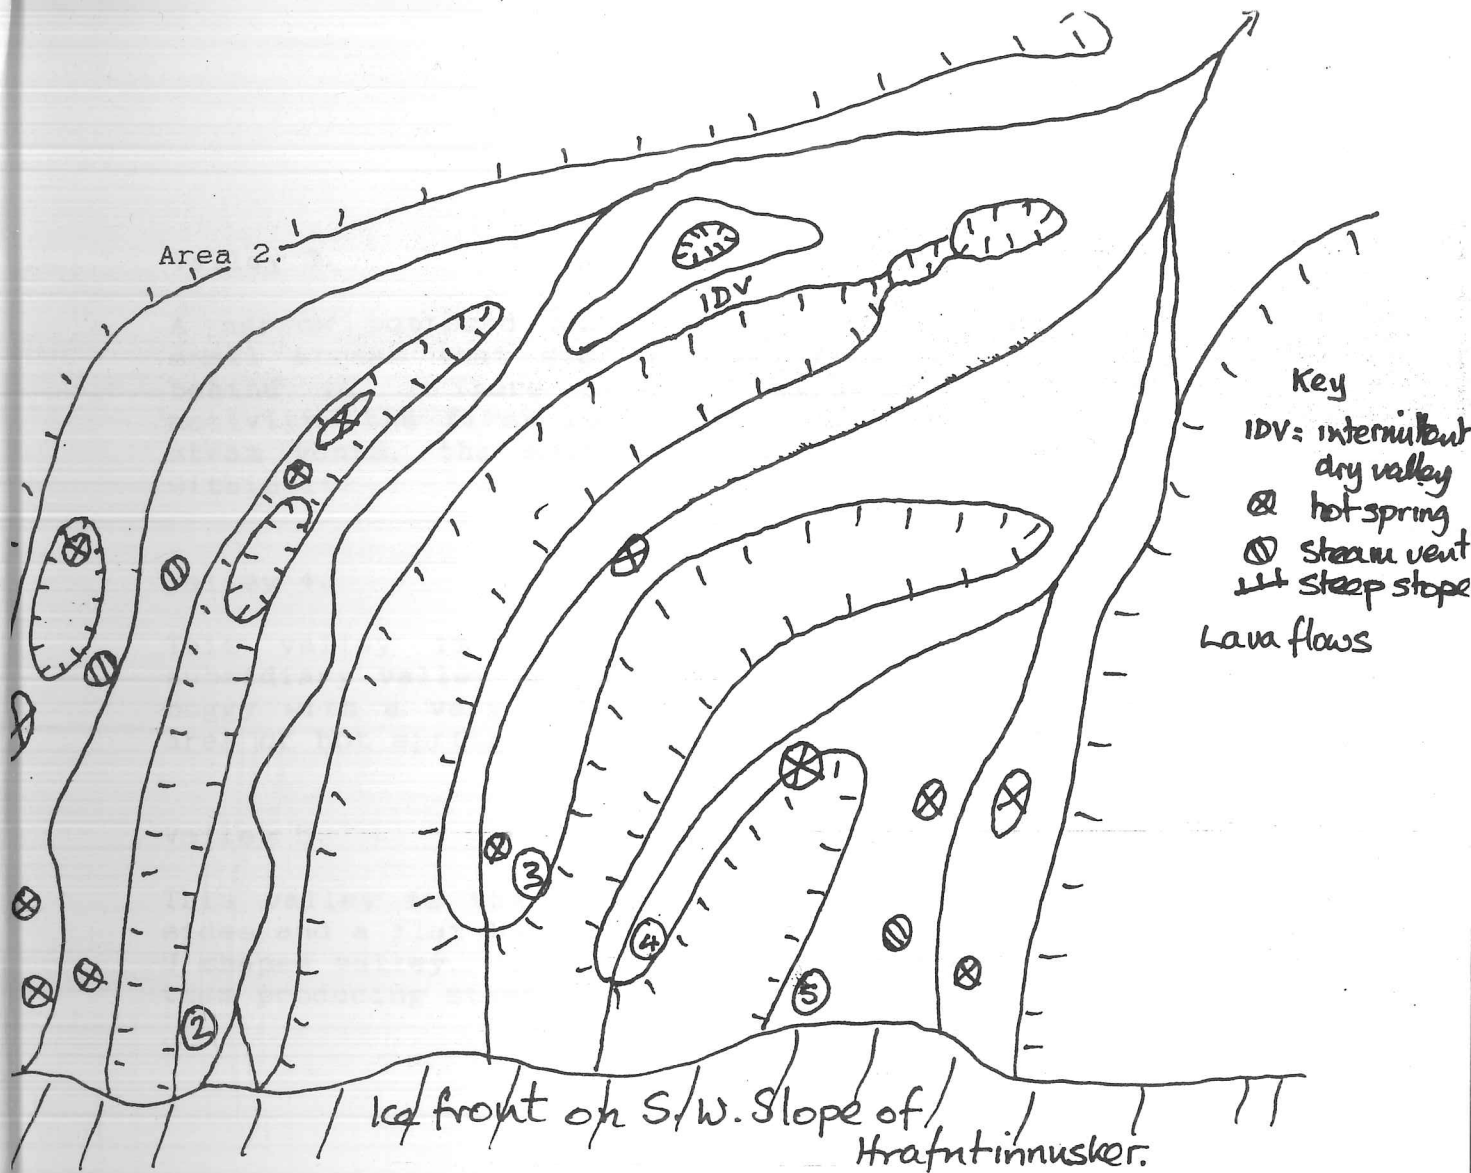 Area 2.
IDV
Key
IDV = intermittant
dry valley
hot spring
steam vent
steep slope
Lava flows
3
4
5
2
Ice front on S.W. Slope of
Hrafntinnusker.